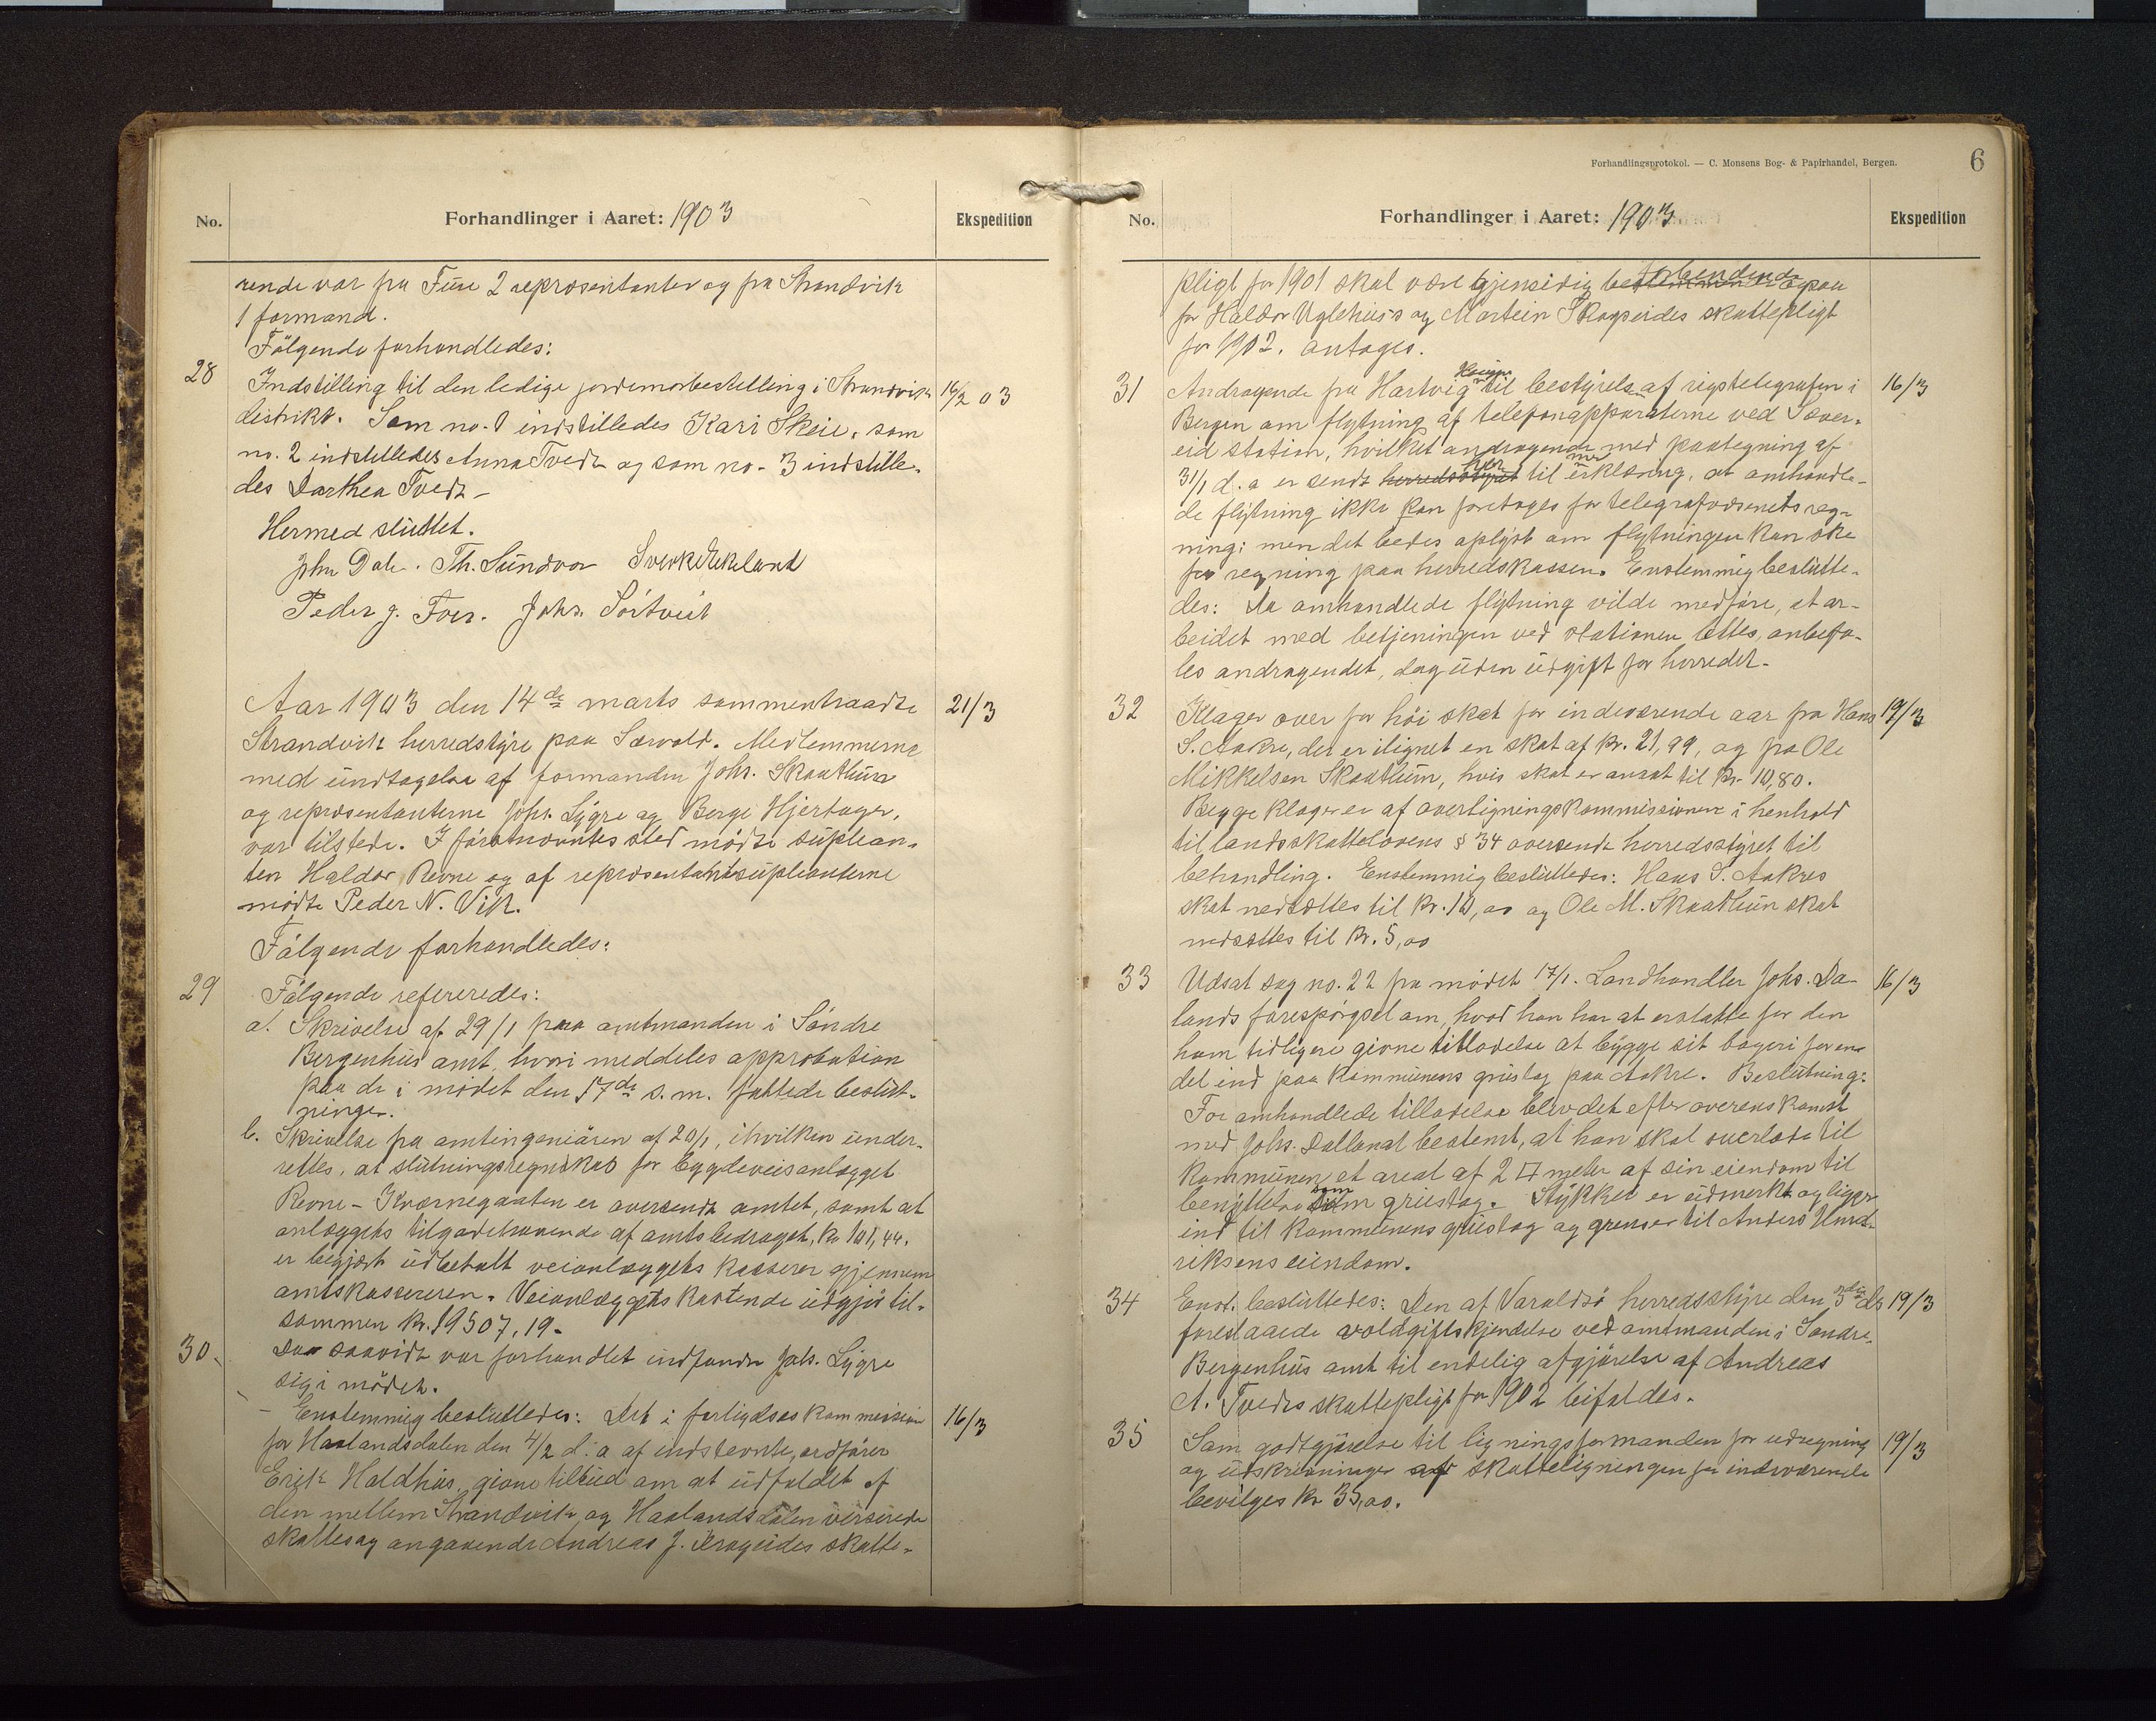 No.
Forhandlinger i Aaret: 1903
Ekspedition
rende var fra Fuse 2 repræsentanter og fra Strandvik
1 formand.
Følgende forhandledes:
28 Indstilling til den ledige jordemorbestelling i Strandvik 16/2 03
distrikt. Som no. 1 indstilledes Kari Skeie, som
no. 2 indstilledes Anna Tvedt og som no. 3 indstille-
des Darthea Tvedt -
Hermed sluttet.
John Dale. Th. Sundvor Sverke Eikeland
Peder J. Foer. Johs. Sörtveit
Aar 1903 den 14de marts sammentraadte 21/3
Strandvik herredstyre paa Sævold. Medlemmerne
med undtagelse af formanden Johs. Skaathun
og repræsentanterne Johs. Lygre og Berge Hjertager,
var tilstede. I förstnævntes sted mödte suplean-
ten Haldor Revne og af repræsentantsuplianterne
mödte Peder N. Vik.
Fölgende forhandledes:
29 Fölgende refereredes:
a. Skrivelse af 29/1 fra amtmanden i Söndre
Bergenhus amt, hvori meddeles approbation
paa de i mödet den 17de s. m. fattede beslut-
ninger.
b. Skrivelse fra amtingeniören af 20/1, i hvilken under-
rettes, at slutningsregnskab for bygdeveisanlægget
Revne - Kværnegaaten er oversendt amtet, samt at
anlæggets tilgodehavende af amtsbidraget, Kr 101,44.
er begjært udbetalt veianlæggets kasserer gjennem
amtskassereren. Veianlæggets kostende udgjör til-
sammen Kr. 19507,19.
30. Da saavidt var forhandlet indfandt Johs. Lygre
sig i mödet.
- Enstemmig besluttedes: Det i forligdseskommission 16/3
for Haalandsdalen den 4/2 d. a. af indstevnte, ordförer
Erik Holdhus, givne tilbud om at udfaldet af
den mellem Strandvik og Haalandsdalen verserende
skattesag angaaende Andreas J. Drageides skatte-
Forhandlingsprotokol. — C. Monsens Bog- & Papirhandel, Bergen.
6
No.
Forhandlinger i Aaret: 1903
Ekspedition
pligt for 1901 skal være gjensidig forbendende paa
for Haldor Uglehus's og Martein Skogseides skattepligt
for 1902. antages.
31 Andragende fra Hartvig til bestyrelsen af rigstelegrafen i 16/3
Bergen om flytning af telefonapparaterne ved Sæver-
eid station, hvilket andragende med paategning af
31/1 d. a. er sendt herredsstyret til erklæring, at omhandle-
de flytning ikke kan foretages for telegrafvæsenets reg-
ning; men det bedes oplyst om flytningen kan ske
for regning paa herredskassen. Enstemmig beslutte-
des: Da omhandlede flytning vilde medföre, at ar-
beidet med betjeningen ved stationen lettes, anbefa-
les andragendet, dog uden udgift for herredet.
32 Klager over for höi skat for indeværende aar fra Hans 19/3
S. Aakre, der er ilignet en skat af kr. 21,99, og fra Ole
Mikkelsen Skaathun, hvis skat er ansat til Kr. 10,80.
Begge klager er af overligningskommissionen i henhold
til landsskattelovens § 34 oversendt herredsstyret til
behandling. Enstemmig besluttedes: Hans S. Aakres
skat nedsættes til Kr. 10,00 og Ole M. Skaathun skat
nedsættes til Kr. 5,00
33 Udsat sag no. 22 fra mödet 17/1. Landhandler Johs. Da- 16/3
lands forespörgsel om, hvad han har at erstatte for den
ham tidligere givne tilladelse at bygge sit bageri for en
del ind paa kommunens grustag paa Aakre. Beslutning:
For omhandlede tilladelse blev det efter overenskomst
med Johs. Dalland bestemt, at han skal overlade til
kommunen et areal af 2 □ meter af sin eiendom til
benyttelse som grustag. Stykket er udmerkt og ligger
ind til kommunens grustag og grenser til Anders Hend-
riksens eiendom.
34 Enst. besluttedes: Den af Varaldsö herredsstyre den 3die ds 19/3
foreslaaede voldgiftskjendelse ved amtmanden i Söndre
Bergenhus amt til endelig afgjörelse af Andreas
A. Tvedts skattepligt for 1902 bifaldes.
35 Som godtgjörelse til ligningsformanden for udregning 19/3
og udskrivninger af skatteligningen for indeværende
bevilges kr 35,00.